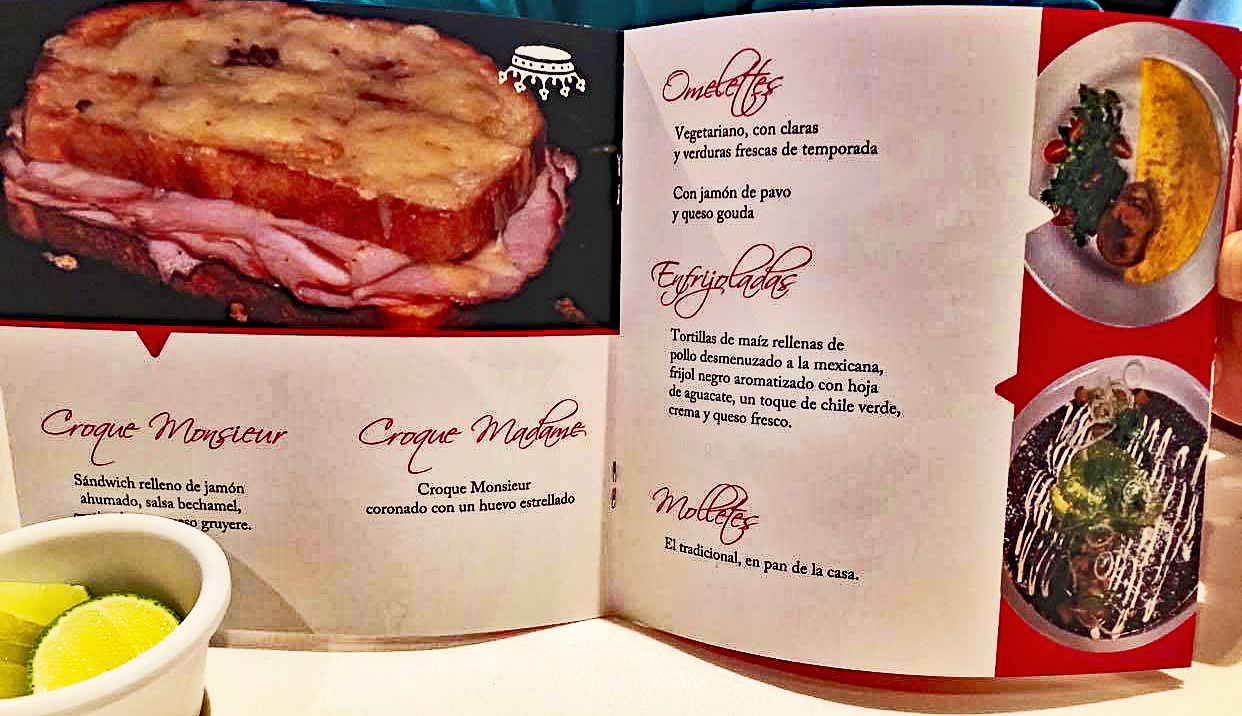 Croque Monsieur
Sándwich relleno de jamón
ahumado, salsa bechamel,
gruyere.
Croque Madame
Croque Monsieur
coronado con un huevo estrellado
Omelettes
Vegetariano, con claras
y verduras frescas de temporada
Con jamón de pavo
y queso gouda
Enfrijoladas
Tortillas de maíz rellenas de
pollo desmenuzado a la mexicana,
frijol negro aromatizado con hoja
de aguacate, un toque de chile verde,
crema y queso fresco.
Molletes
El tradicional, en pan de la casa.